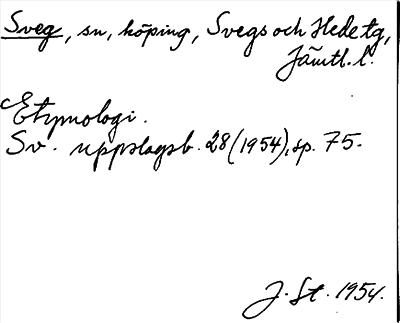 Sveg, sn, köping, Svegs och Hede tg,
Jämtl. l.
Etymologi.
Sv. uppslagsb. 28 (1954), sp. 75.
J. St. 1954.